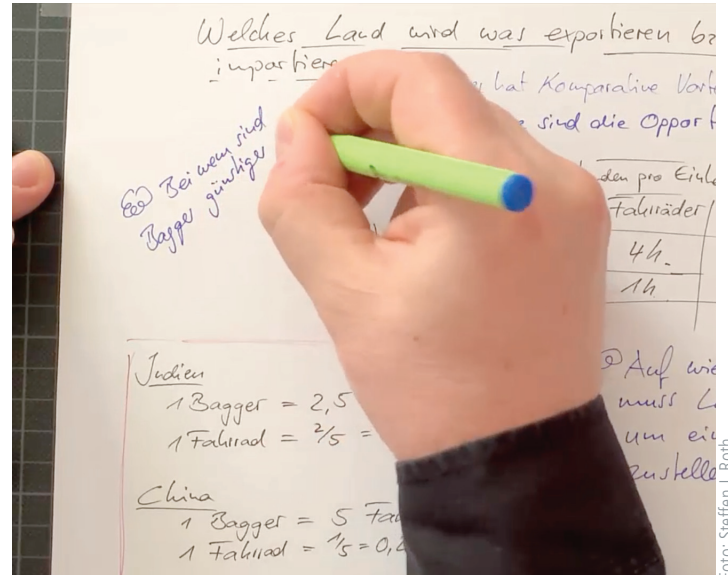 Welches Land wird was exportieren bz
importiere
hat Komparative Vort
sind die Opport
Bei wem sind
Bagger günstiger
den pro Einh
Fahrräder
4h
1h
Indien
1 Bagger = 2,5
1 Fahrrad = 2/5 =
China
1 Bagger = 5 Fa
1 Fahrrad = 1/5 = 0,2
Auf wie
muss L
um ein
zustelle
Foto: Steffen J. Roth